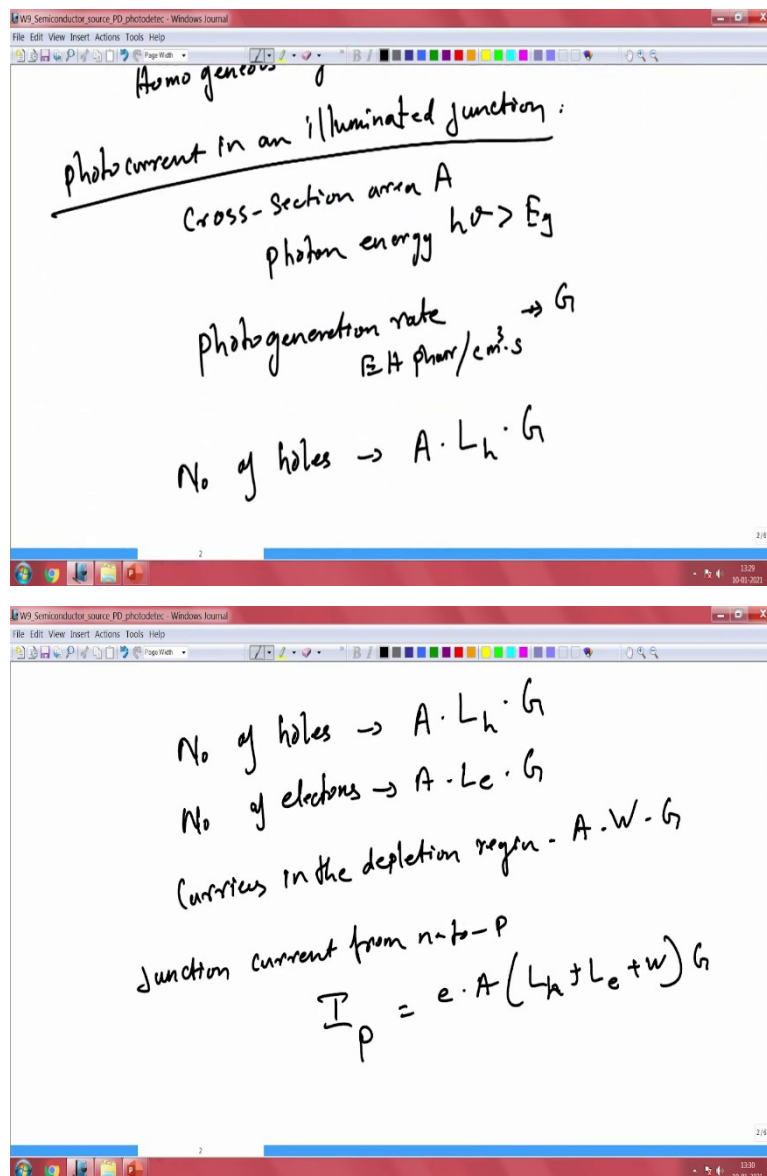 W9_Semiconductor_source_PD_photodetec - Windows Journal
File Edit View Insert Actions Tools Help
Page Width
Homogeneous
photocurrent in an illuminated junction :
Cross-section area A
photon energy hυ > Eg
photogeneration rate → G
EH phair/cm³.s
No of holes → A · Lh · G
2/6
2
13:29
10-01-2021
W9_Semiconductor_source_PD_photodetec - Windows Journal
File Edit View Insert Actions Tools Help
Page Width
No of holes → A · Lh · G
No of electons → A · Le · G
Carriers in the depletion region - A . W . G
Junction current from n-to-p
Ip = e · A (Lh + Le + W) G
2/6
2
13:30
10-01-2021